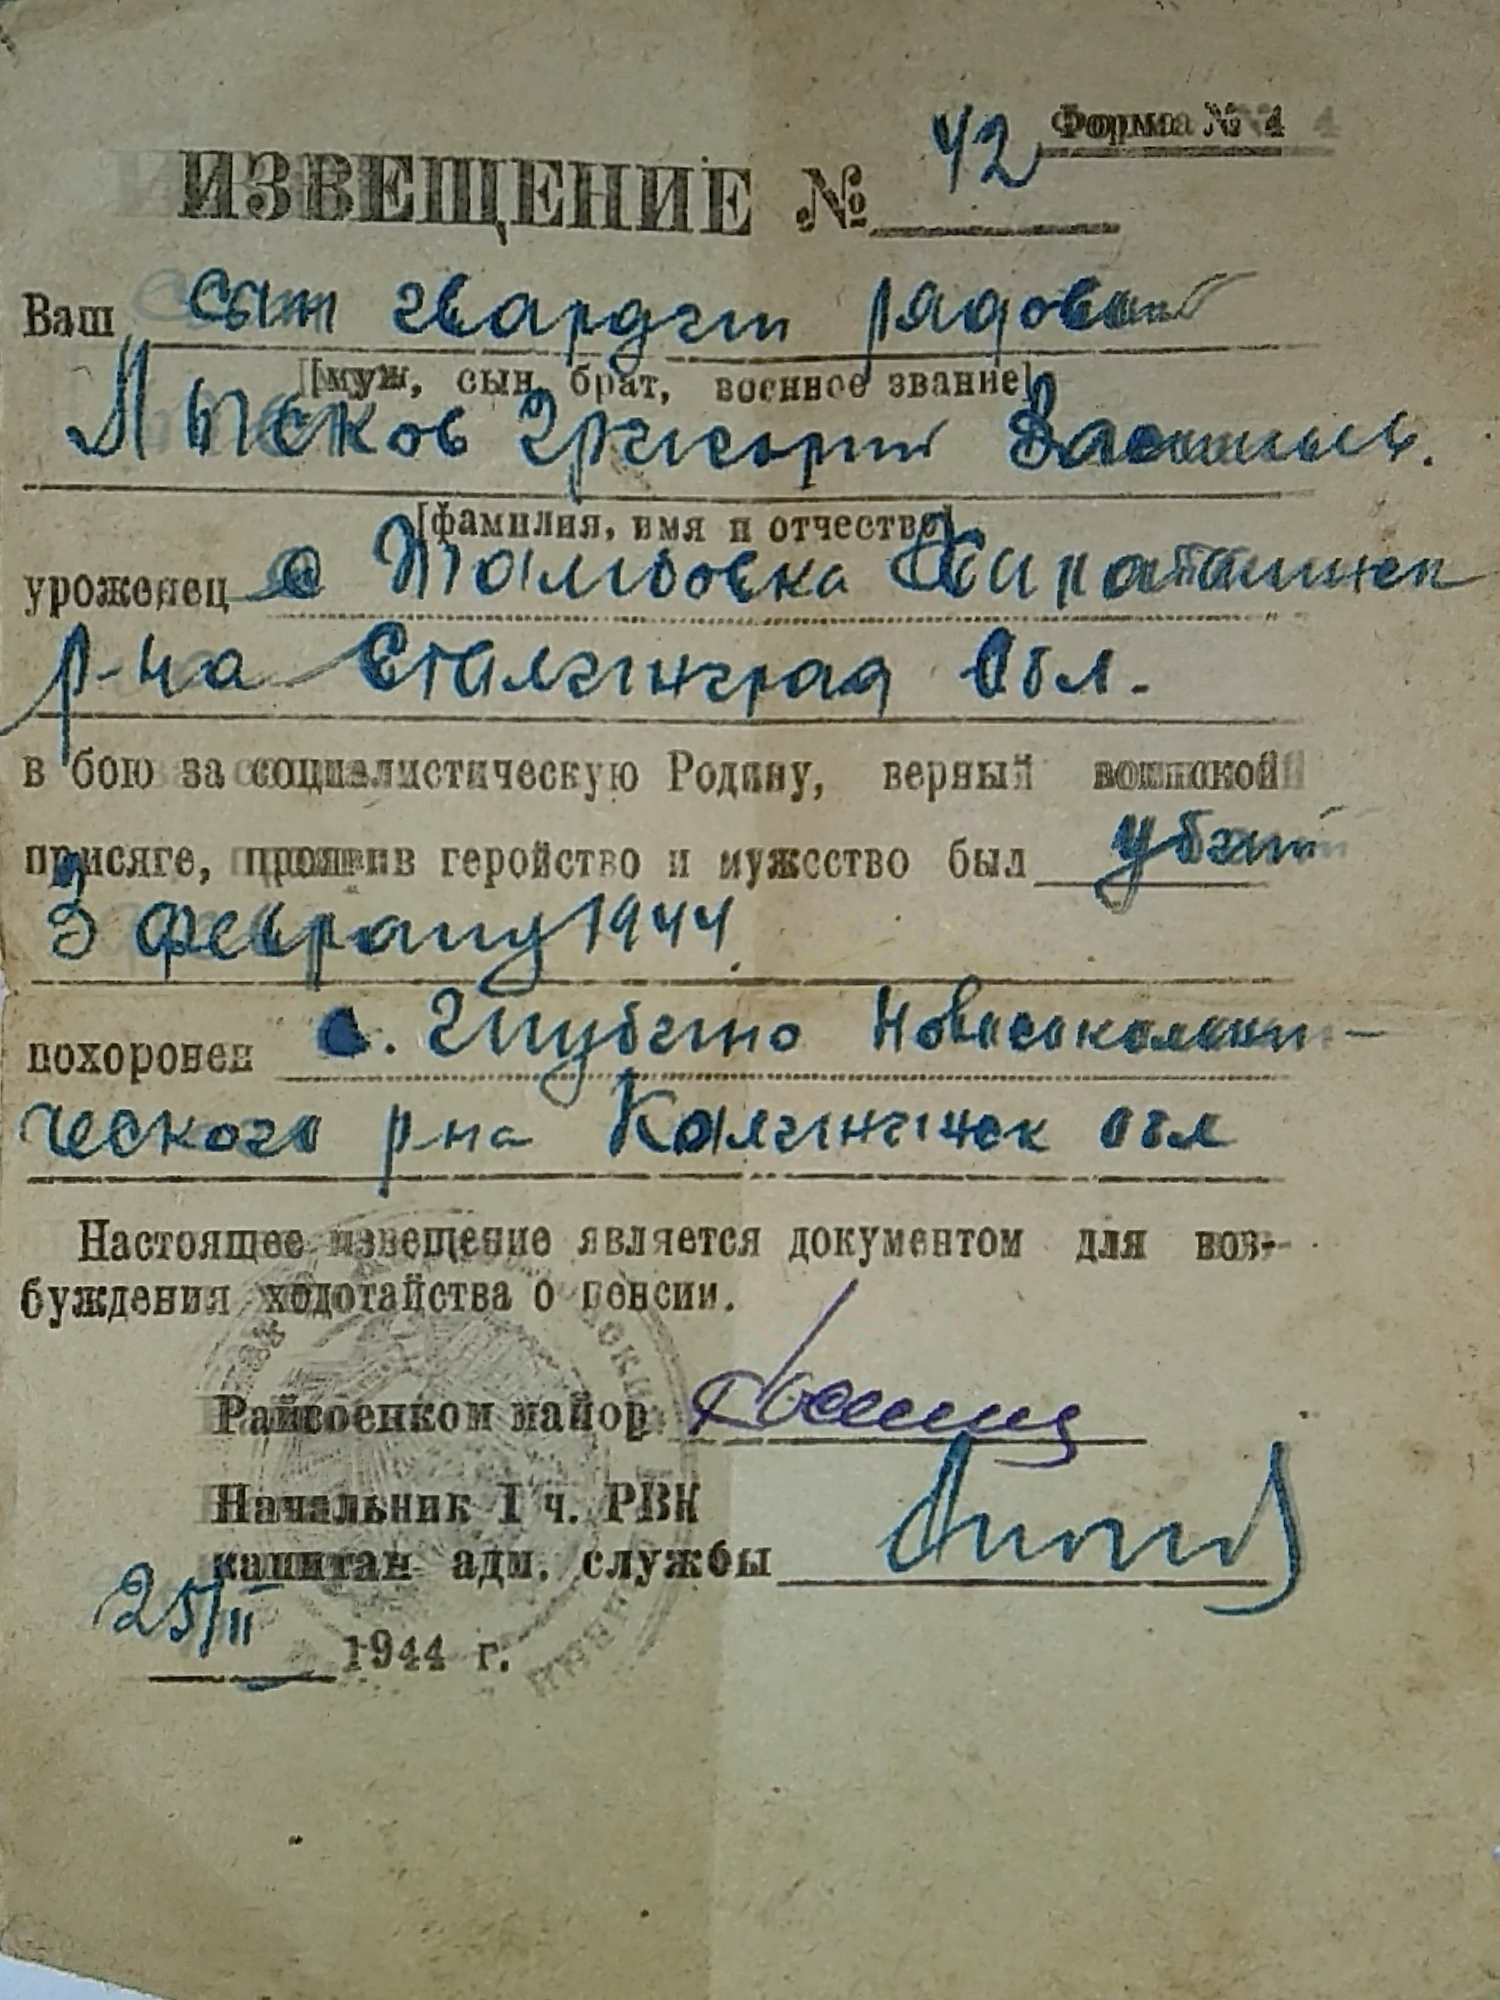 Форма № 4
ИЗВЕЩЕНИЕ № 42
Ваш сын гвардии рядовой
[муж, сын, брат, военное звание]
Лысков Григорий Василье.
[фамилия, имя и отчество]
уроженец с Тамбовка
р-на Сталинград Обл.
в бою за социалистическую Родину, верный воинской
присяге, проявив геройство и мужество был убит
3 февраля 1944
похоронен с. Глубино Новосокольни-
ческого р-на Калининск обл
Настоящее извещение является документом для воз-
буждения ходотайства о пенсии.
Райвоенком майор
Начальник 1 ч. РВК
капитан адм. службы
25/II 1944 г.